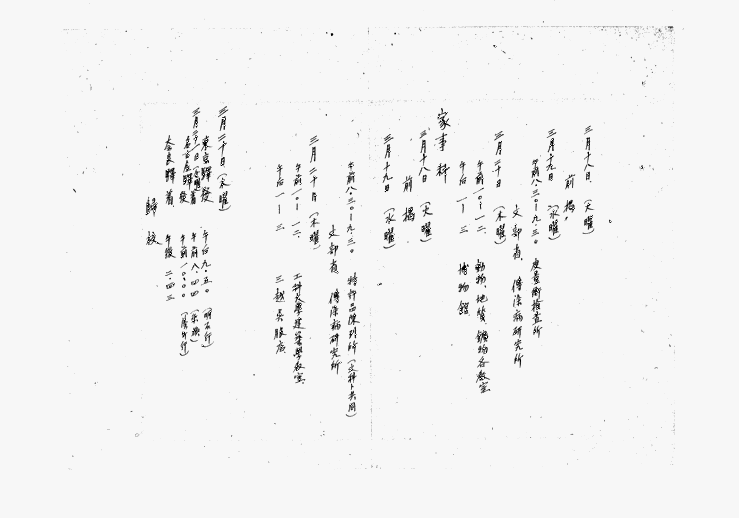 三月十八日、(火曜)
前掲、
三月十九日 (水曜)
午前八・三〇ー九・三〇 度量衡検査所
文部省、傳染病研究所
三月二十日 (木曜)
午前一〇ー一二、動物、地質、鑛物各教室
午后一ー三 博物館
家事科
三月十八日 (火曜)
前掲
三月十九日 (水曜)
午前八・三〇ー九・三〇 特許品陳列所(文科ト共同)
文部省、傳染病研究所
三月二十日 (木曜)
午前一〇ー一二、工科大學建築學教室
午后一ー三 三越呉服店
三月二十日 (木曜)
東京驛發 午后九・五〇 (明石行)
三月二十一日
名古屋驛着 午前八・四四
發 午前一〇・〇〇
奈良驛着、午後二・四三
歸校